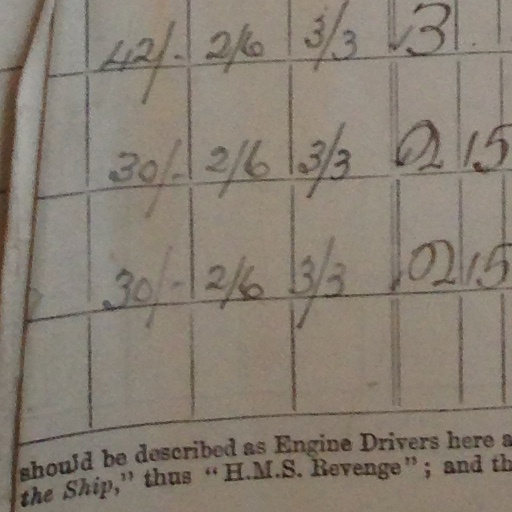 42/- 2/6 3/3 3
30/- 2/6 3/3 02 15
30/- 2/6 3/3 02 15
should be described as Engine Drivers here a
the Ship," thus "H.M.S. Revenge"; and th